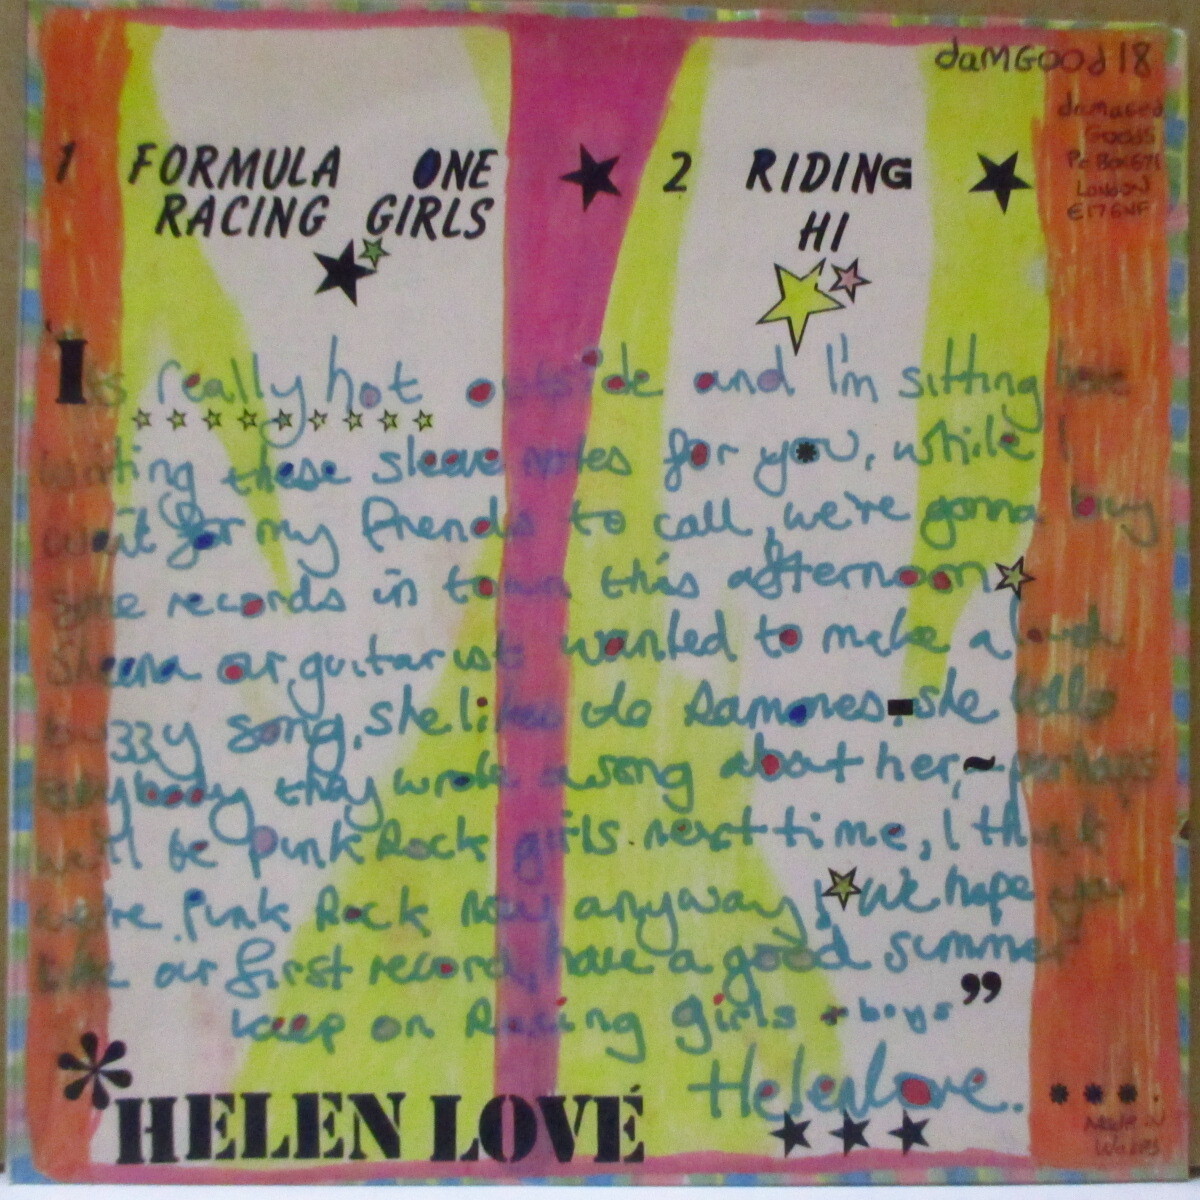 damGood 18
damaged
Goods
Po Box 671
London
E17 6NF
1 FORMULA ONE
RACING GIRLS
2 RIDING
HI
Its really hot outside and I'm sitting here
writing these sleeve notes for you, while I
wait for my friends to call, we're gonna buy
some records in town this afternoon
Sheena our guitarist wanted to make a loud
buzzy song, she likes de Ramones. she tells
everybody they wrote a song about her, ~ perhaps
we'll be punk Rock girls next time, I think
we're Punk Rock now anyway! We hope you
like our first record, have a good summer
keep on Racing girls + boys"
Helen Love.
* HELEN LOVÉ
Made in
Wales